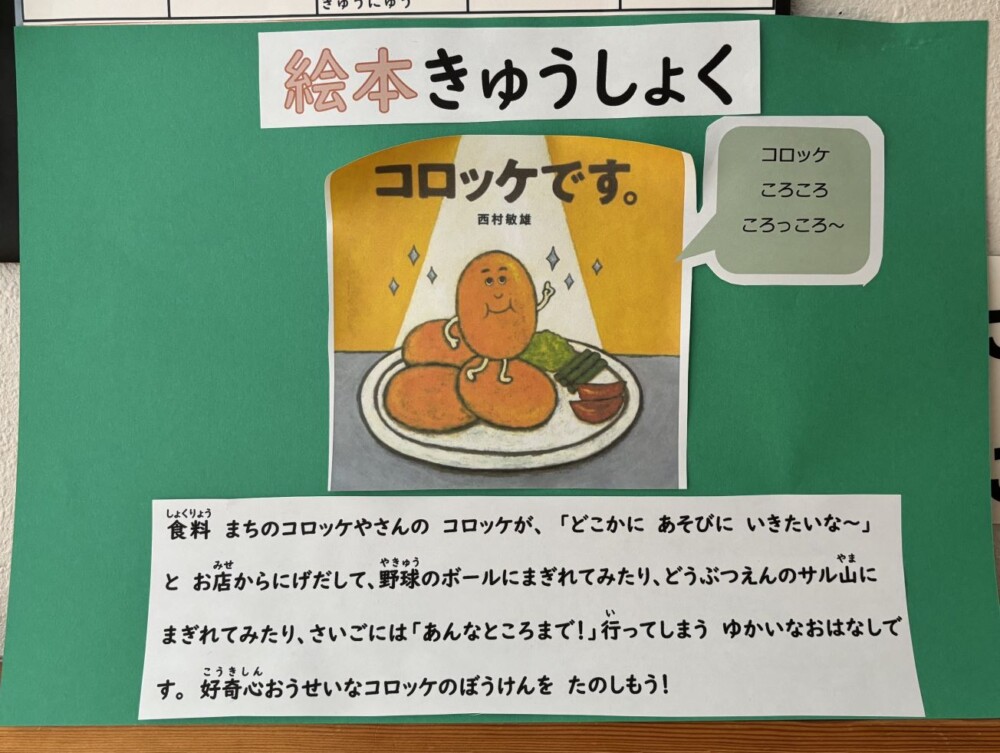 ぎゅうにゅう
絵本きゅうしょく
コロッケです。
西村敏雄
コロッケ
ころころ
ころっころ～
しょくりょう
食料 まちのコロッケやさんの コロッケが、「どこかに あそびに いきたいな～」
みせ やきゅう やま
と お店からにげだして、野球のボールにまぎれてみたり、どうぶつえんのサル山に
い
まぎれてみたり、さいごには「あんなところまで！」行ってしまう ゆかいなおはなしで
こうきしん
す。 好奇心おうせいなコロッケのぼうけんを たのしもう！